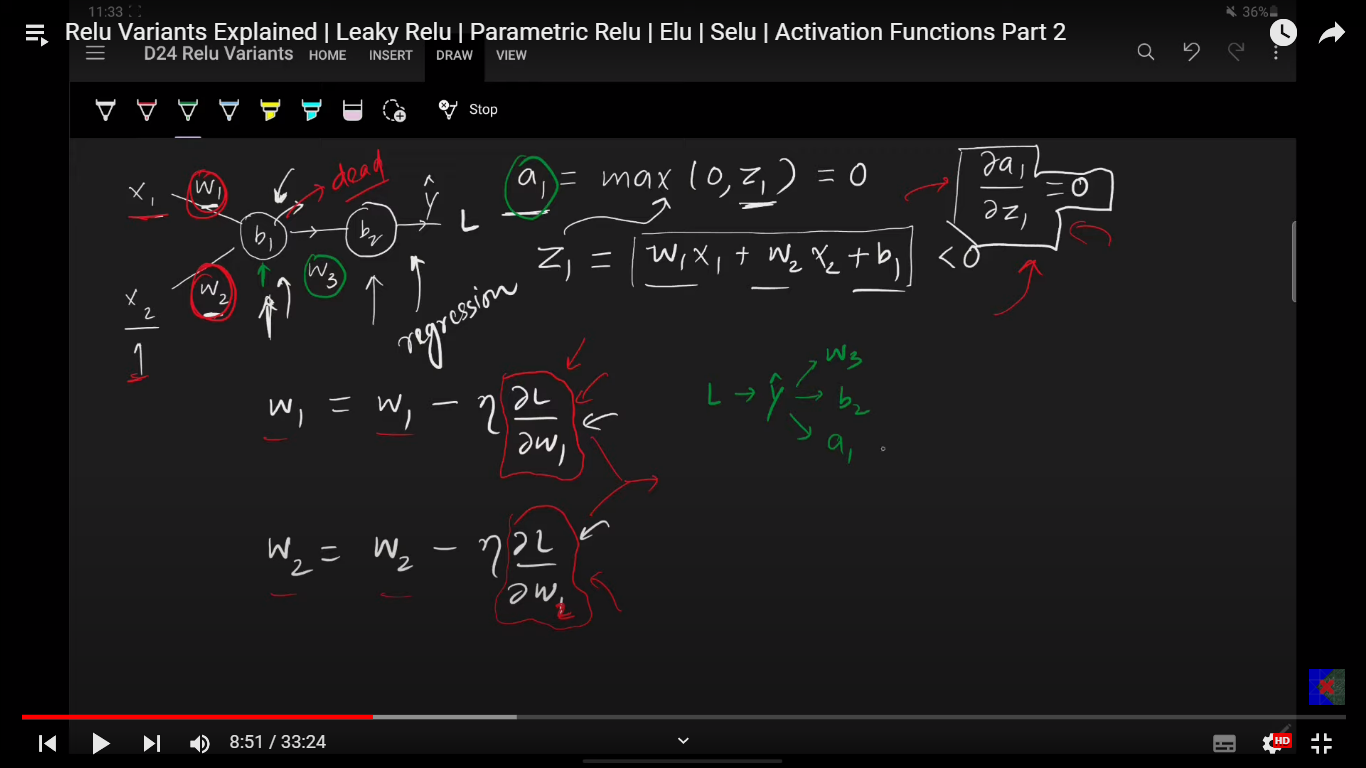 11:33 36%
Relu Variants Explained | Leaky Relu | Parametric Relu | Elu | Selu | Activation Functions Part 2
D24 Relu Variants HOME INSERT DRAW VIEW
Stop
x₁ w₁ dead ŷ
b₁ b₂ L
w₃
x₂ w₂
1
regression
a₁ = max (0, z₁) = 0
∂a₁/∂z₁ = 0
z₁ = w₁x₁ + w₂x₂ + b₁ < 0
w₁ = w₁ − η ∂L/∂w₁
L → ŷ → w₃
→ b₂
→ a₁
w₂ = w₂ − η ∂L/∂w₂
8:51 / 33:24
HD